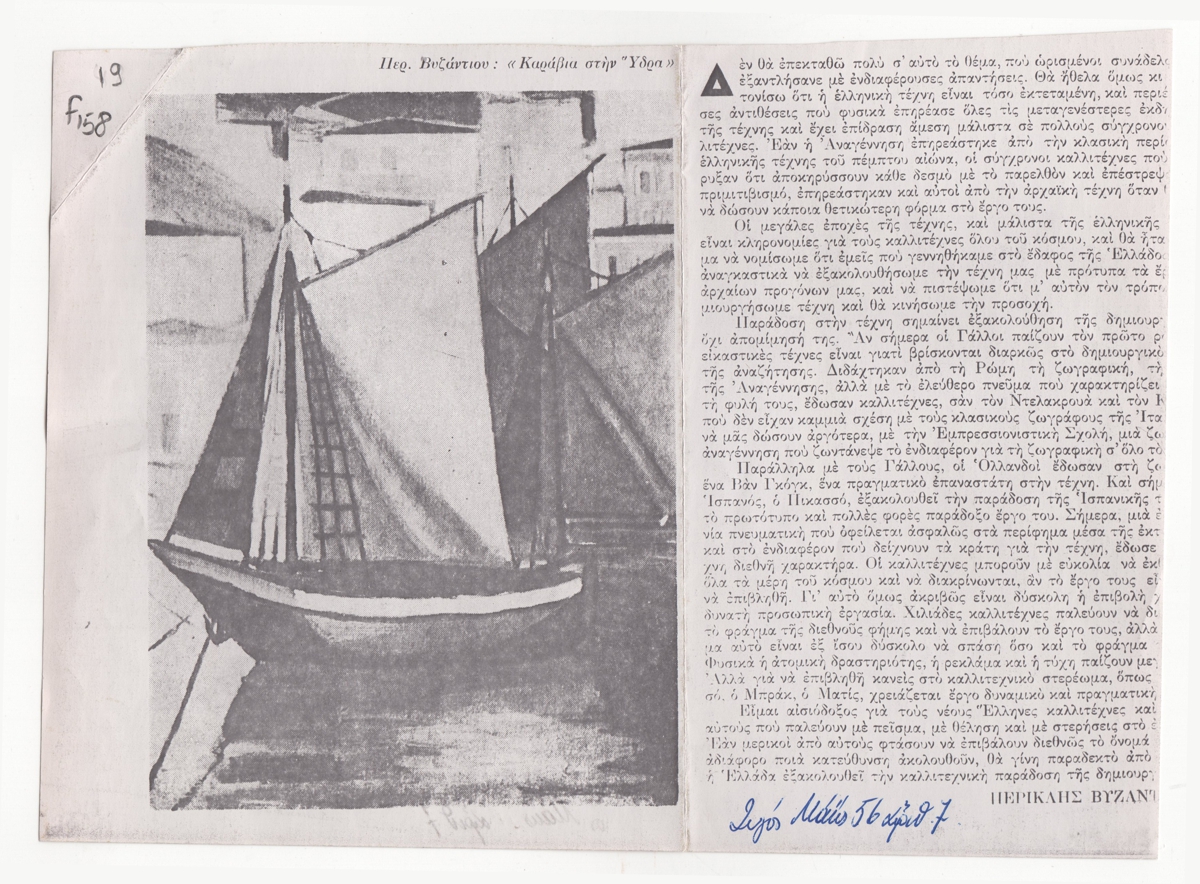 19
f,58
Περ. Βυζάντιου : « Καράβια στὴν Ὕδρα »
Δὲν θὰ ἐπεκταθῶ πολὺ σ' αὐτὸ τὸ θέμα, ποὺ ὡρισμένοι συνάδελ
ἐξαντλήσανε μὲ ἐνδιαφέρουσες ἀπαντήσεις. Θὰ ἤθελα ὅμως
τονίσω ὅτι ἡ ἑλληνικὴ τέχνη εἶναι τόσο ἐκτεταμένη, καὶ περιέ
σες ἀντιθέσεις ποὺ φυσικὰ ἐπηρέασε ὅλες τὶς μεταγενέστερες ἐκδ
τῆς τέχνης καὶ ἔχει ἐπίδραση ἄμεση μάλιστα σὲ πολλοὺς σύγχρονο
λιτέχνες. Ἐὰν ἡ Ἀναγέννηση ἐπηρεάστηκε ἀπὸ τὴν κλασικὴ περί
ἑλληνικῆς τέχνης τοῦ πέμπτου αἰώνα, οἱ σύγχρονοι καλλιτέχνες ποὺ
ρυξαν ὅτι ἀποκηρύσσουν κάθε δεσμὸ μὲ τὸ παρελθὸν καὶ ἐπέστρεψ
πριμιτιβισμό, ἐπηρεάστηκαν καὶ αὐτοὶ ἀπὸ τὴν ἀρχαϊκὴ τέχνη ὅταν
νὰ δώσουν κάποια θετικώτερη φόρμα στὸ ἔργο τους.
Οἱ μεγάλες ἐποχὲς τῆς τέχνης, καὶ μάλιστα τῆς ἑλληνικῆς
εἶναι κληρονομίες γιὰ τοὺς καλλιτέχνες ὅλου τοῦ κόσμου, καὶ θὰ ἦτα
μα νὰ νομίσωμε ὅτι ἐμεῖς ποὺ γεννηθήκαμε στὸ ἔδαφος τῆς Ἑλλάδο
ἀναγκαστικὰ νὰ ἐξακολουθήσωμε τὴν τέχνη μας μὲ πρότυπα τὰ ἔρ
ἀρχαίων προγόνων μας, καὶ νὰ πιστέψωμε ὅτι μ' αὐτὸν τὸν τρόπο
μιουργήσωμε τέχνη καὶ θὰ κινήσωμε τὴν προσοχή.
Παράδοση στὴν τέχνη σημαίνει ἐξακολούθηση τῆς δημιουργ
ὄχι ἀπομίμησή της. Ἂν σήμερα οἱ Γάλλοι παίζουν τὸν πρῶτο ρ
εἰκαστικὲς τέχνες εἶναι γιατὶ βρίσκονται διαρκῶς στὸ δημιουργικὸ
τῆς ἀναζήτησης. Διδάχτηκαν ἀπὸ τὴ Ρώμη τὴ ζωγραφική, τὴ
τῆς Ἀναγέννησης, ἀλλὰ μὲ τὸ ἐλεύθερο πνεῦμα ποὺ χαρακτηρίζει
τὴ φυλή τους, ἔδωσαν καλλιτέχνες, σὰν τὸν Ντελακρουὰ καὶ τὸν
ποὺ δὲν εἶχαν καμμιὰ σχέση μὲ τοὺς κλασικοὺς ζωγράφους τῆς Ἰτα
νὰ μᾶς δώσουν ἀργότερα, μὲ τὴν Ἐμπρεσσιονιστικὴ Σχολή, μιὰ ζω
ἀναγέννηση ποὺ ζωντάνεψε τὸ ἐνδιαφέρον γιὰ τὴ ζωγραφικὴ σ' ὅλο τὸ
Παράλληλα μὲ τοὺς Γάλλους, οἱ Ὁλλανδοὶ ἔδωσαν στὴ ζω
ἕνα Βὰν Γκόγκ, ἕνα πραγματικὸ ἐπαναστάτη στὴν τέχνη. Καὶ σήμ
Ἱσπανός, ὁ Πικασσό, ἐξακολουθεῖ τὴν παράδοση τῆς Ἱσπανικῆς τ
τὸ πρωτότυπο καὶ πολλὲς φορὲς παράδοξο ἔργο του. Σήμερα, μιὰ
νία πνευματικὴ ποὺ ὀφείλεται ἀσφαλῶς στὰ περίφημα μέσα τῆς ἐκτ
καὶ στὸ ἐνδιαφέρον ποὺ δείχνουν τὰ κράτη γιὰ τὴν τέχνη, ἔδωσε
χνη διεθνῆ χαρακτῆρα. Οἱ καλλιτέχνες μποροῦν μὲ εὐκολία νὰ ἐκ
ὅλα τὰ μέρη τοῦ κόσμου καὶ νὰ διακρίνωνται, ἂν τὸ ἔργο τους εἶ
νὰ ἐπιβληθῆ. Γι' αὐτὸ ὅμως ἀκριβῶς εἶναι δύσκολη ἡ ἐπιβολὴ
δυνατὴ προσωπικὴ ἐργασία. Χιλιάδες καλλιτέχνες παλεύουν νὰ δι
τὸ φράγμα τῆς διεθνοῦς φήμης καὶ νὰ ἐπιβάλουν τὸ ἔργο τους, ἀλλὰ
μα αὐτὸ εἶναι ἐξ ἴσου δύσκολο νὰ σπάση ὅσο καὶ τὸ φράγμα
Φυσικὰ ἡ ἀτομικὴ δραστηριότης, ἡ ρεκλάμα καὶ ἡ τύχη παίζουν μεγ
Ἀλλὰ γιὰ νὰ ἐπιβληθῆ κανεὶς στὸ καλλιτεχνικὸ στερέωμα, ὅπως
σό, ὁ Μπράκ, ὁ Ματίς, χρειάζεται ἔργο δυναμικὸ καὶ πραγματικὴ
Εἶμαι αἰσιόδοξος γιὰ τοὺς νέους Ἕλληνες καλλιτέχνες καὶ
αὐτοὺς ποὺ παλεύουν μὲ πεῖσμα, μὲ θέληση καὶ μὲ στερήσεις στὸ
Ἐὰν μερικοὶ ἀπὸ αὐτοὺς φτάσουν νὰ ἐπιβάλουν διεθνῶς τὸ ὄνομά
ἀδιάφορο ποιὰ κατεύθυνση ἀκολουθοῦν, θὰ γίνη παραδεκτὸ ἀπὸ
ἡ Ἑλλάδα ἐξακολουθεῖ τὴν καλλιτεχνικὴ παράδοση τῆς δημιουργ
ΠΕΡΙΚΛΗΣ ΒΥΖΑΝΤ
Ζυγός Μάϊος 56 ἀριθ. 7